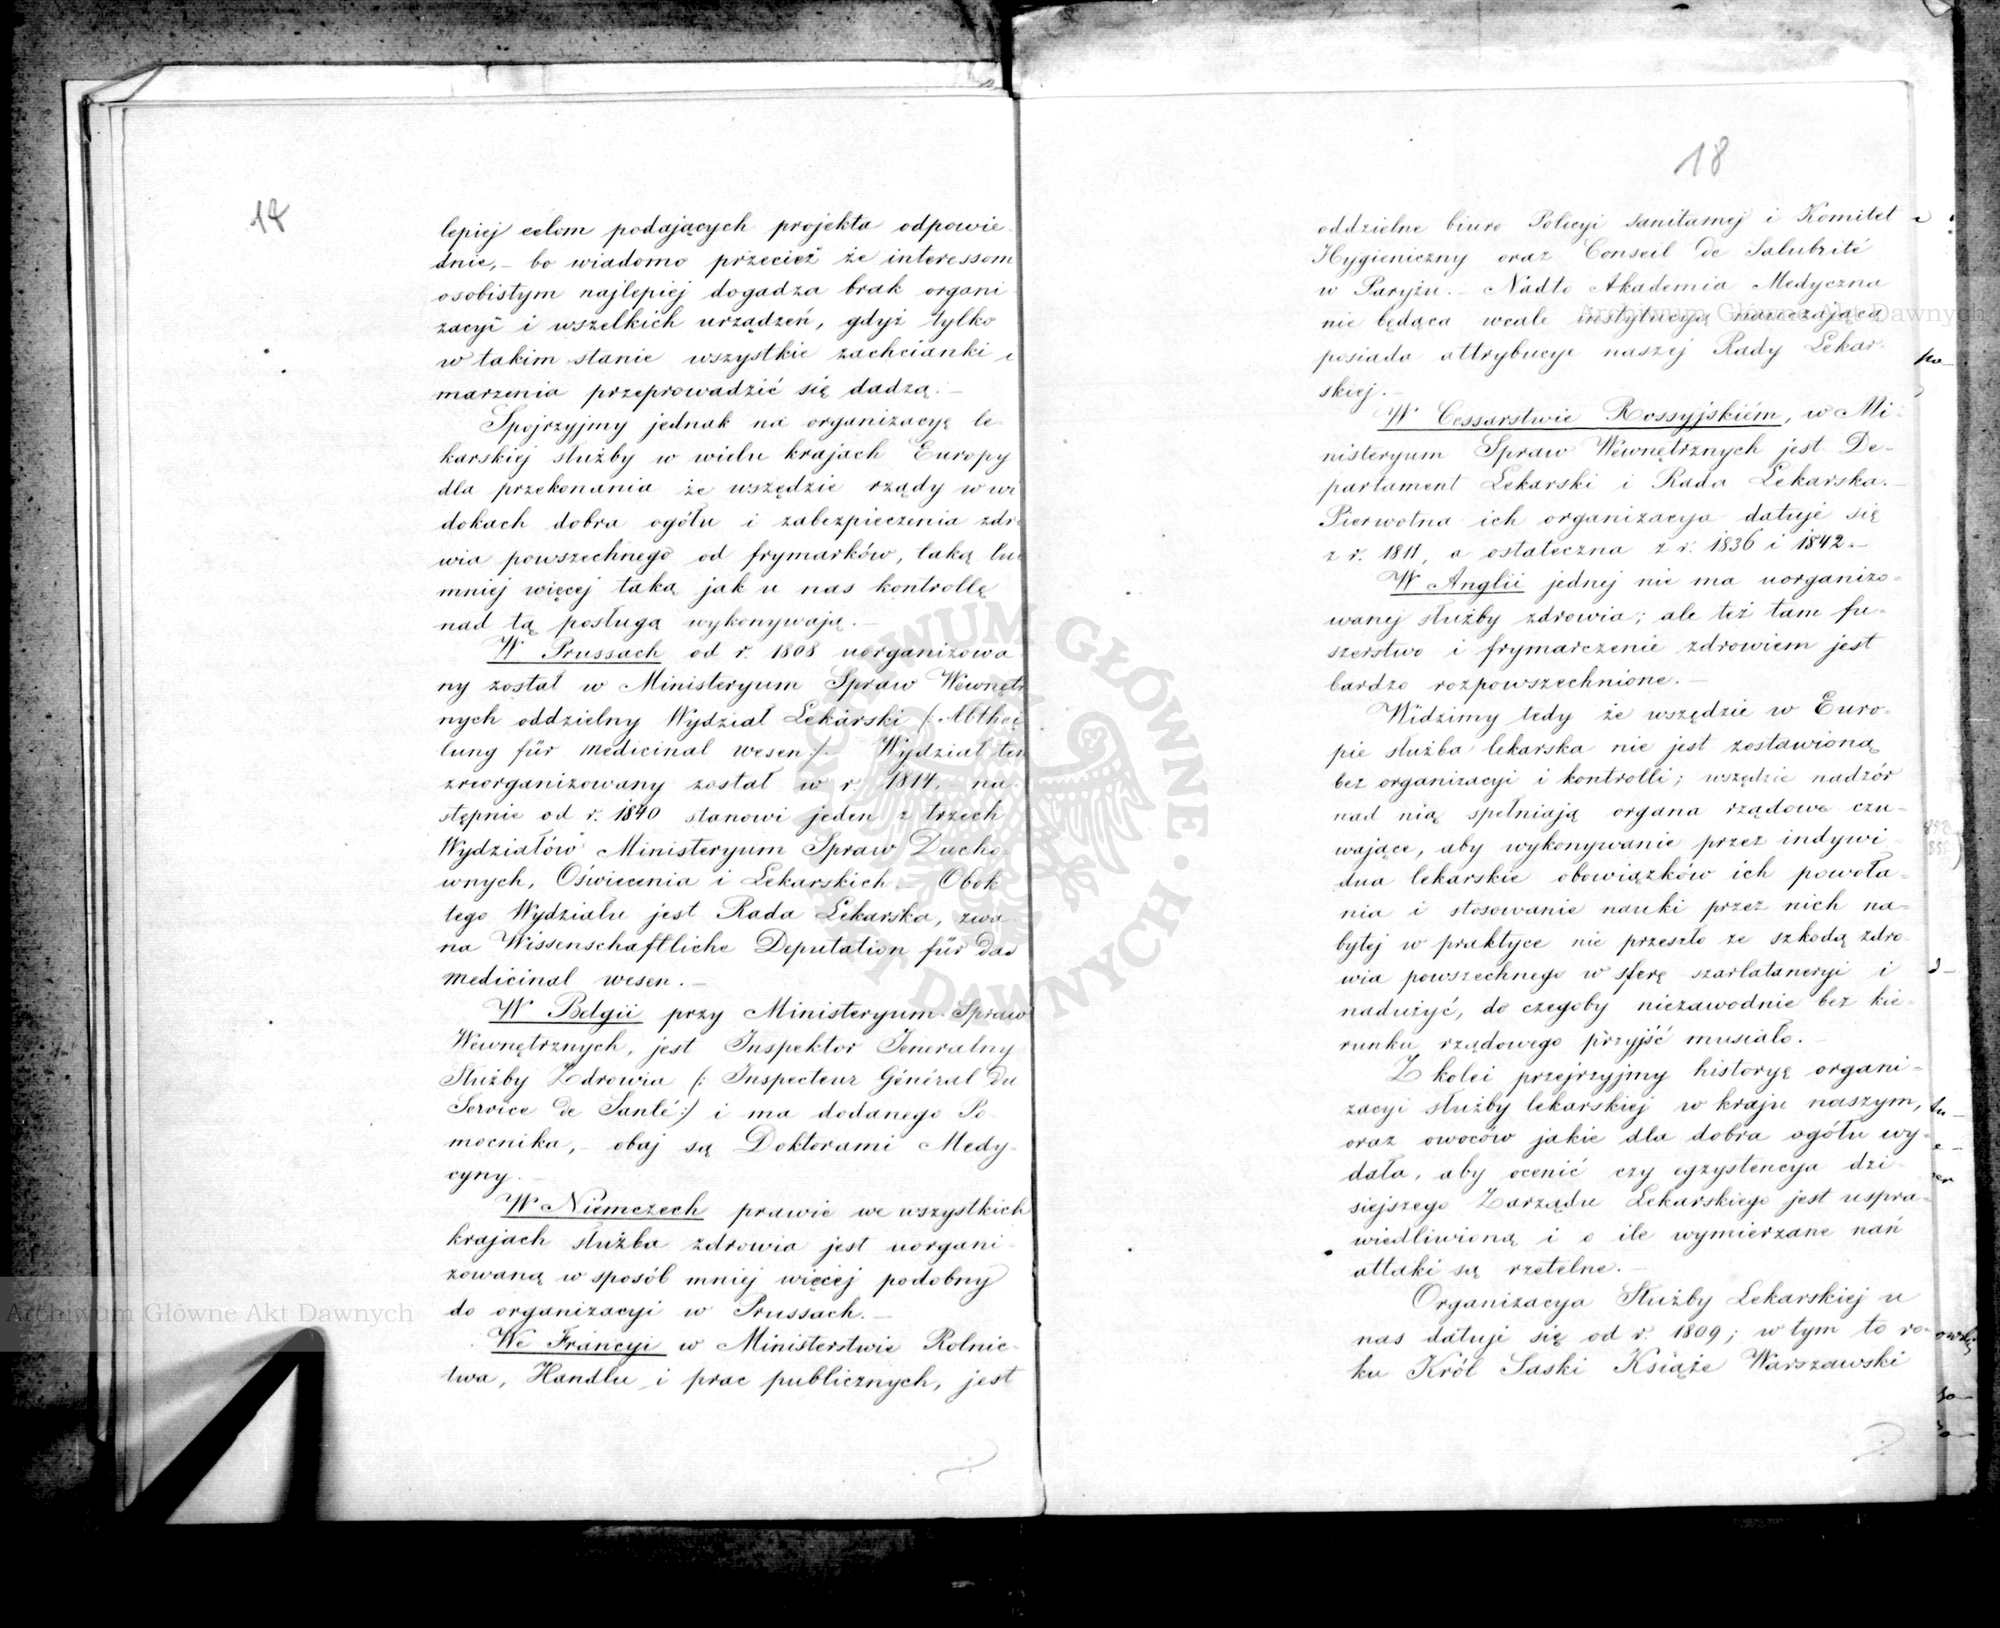 18
lepiej celom podających projekta odpowie
dnie, – bo wiadomo przecież że interessom
osobistym najlepiej dogadza brak organi
zacyi i wszelkich urządzeń, gdyż tylko
w takim stanie wszystkie zachcianki i
marzenia przeprowadzić się dadzą. –
Spojrzyjmy jednak na organizacyę le-
karskiej służby w wielu krajach Europy
dla przekonania że wszędzie rządy w wi
dokach dobra ogółu i zabezpieczenia zdro
wia powszechnego od frymarków, taką lub
mniej więcej taką jak u nas kontrollę
nad tą posługą wykonywają. –
W Prussach od r. 1808 uorganizowa
ny został w Ministeryum Spraw Wewnętrz
nych oddzielny Wydział Lekarski (: Abthei
lung für medicinal wesen :). Wydział ten
zreorganizowany został w r. 1814, na
stępnie od r. 1840 stanowi jeden z trzech
Wydziałów Ministeryum Spraw Ducho-
wnych, Oświecenia i Lekarskich. Obok
tego Wydziału jest Rada Lekarska, zwa
na Wissenschaftliche Deputation für das
medicinal wesen. –
W Belgii przy Ministeryum Spraw
Wewnętrznych, jest Inspektor Jeneralny
Służby Zdrowia (: Inspecteur Général du
Service de Santé :) i ma dodanego Po-
mocnika, – obaj są Doktorami Medy-
cyny. –
W Niemczech prawie we wszystkich
krajach służba zdrowia jest uorgani-
zowaną w sposób mniej więcej podobny
do organizacyi w Prussach. –
We Francyi w Ministerstwie Rolnic-
twa, Handlu i prac publicznych, jest
18
oddzielne biuro Policyi sanitarnej i Komitet
Hygieniczny oraz Conseil de Salubrité
w Paryżu. – Nadto Akademia Medyczna
nie będąca wcale instytucyą nauczającą
posiada attrybucye naszej Rady Lekar-
skiej. –
W Cessarstwie Rossyjskiém, w Mi-
nisteryum Spraw Wewnętrznych jest De-
partament Lekarski i Rada Lekarska. –
Pierwotna ich organizacya datuje się
z r. 1811, a ostateczna z r. 1836 i 1842. –
W Anglii jednej nie ma uorganizo-
wanej służby zdrowia; ale też tam fu-
szerstwo i frymarczenie zdrowiem jest
bardzo rozpowszechnione. –
Widzimy tedy że wszędzie w Euro-
pie służba lekarska nie jest zostawioną
bez organizacyi i kontrolli; wszędzie nadzór
nad nią spełniają organa rządowe czu-
wające, aby wykonywanie przez indywi
dua lekarskie obowiązków ich powoła-
nia i stosowanie nauki przez nich na-
bytej w praktyce nie przeszło ze szkodą zdro-
wia powszechnego w sferę szarlataneryi i
nadużyć, do czegoby niezawodnie bez kie-
runku rządowego przyjść musiało. –
Z kolei przejrzyjmy historyę organi-
zacyi służby lekarskiej w kraju naszym,
oraz owoców jakie dla dobra ogółu wy-
dała, aby ocenić czy egzystencya dzi-
siejszego Zarządu Lekarskiego jest uspra-
wiedliwioną i o ile wymierzane nań
attaki są rzetelne. –
Organizacya Służby Lekarskiej u
nas datuje się od r. 1809; w tym to ro-
ku Król Saski Książe Warszawski
Archiwum Główne Akt Dawnych
Archiwum Główne Akt Dawnych
ARCHIWUM GŁÓWNE AKT DAWNYCH